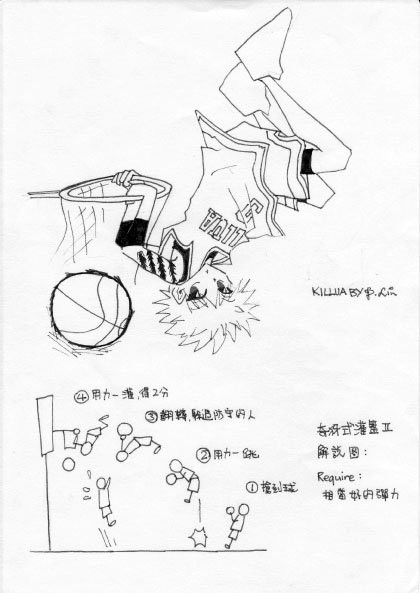 KILLUA BY
④ 用力一灌,得2分
③ 翻轉,躲過防守的人
② 用力一跳
① 搶到球
奇犽式灌籃 II
解說圖:
Require:
相當好的彈力